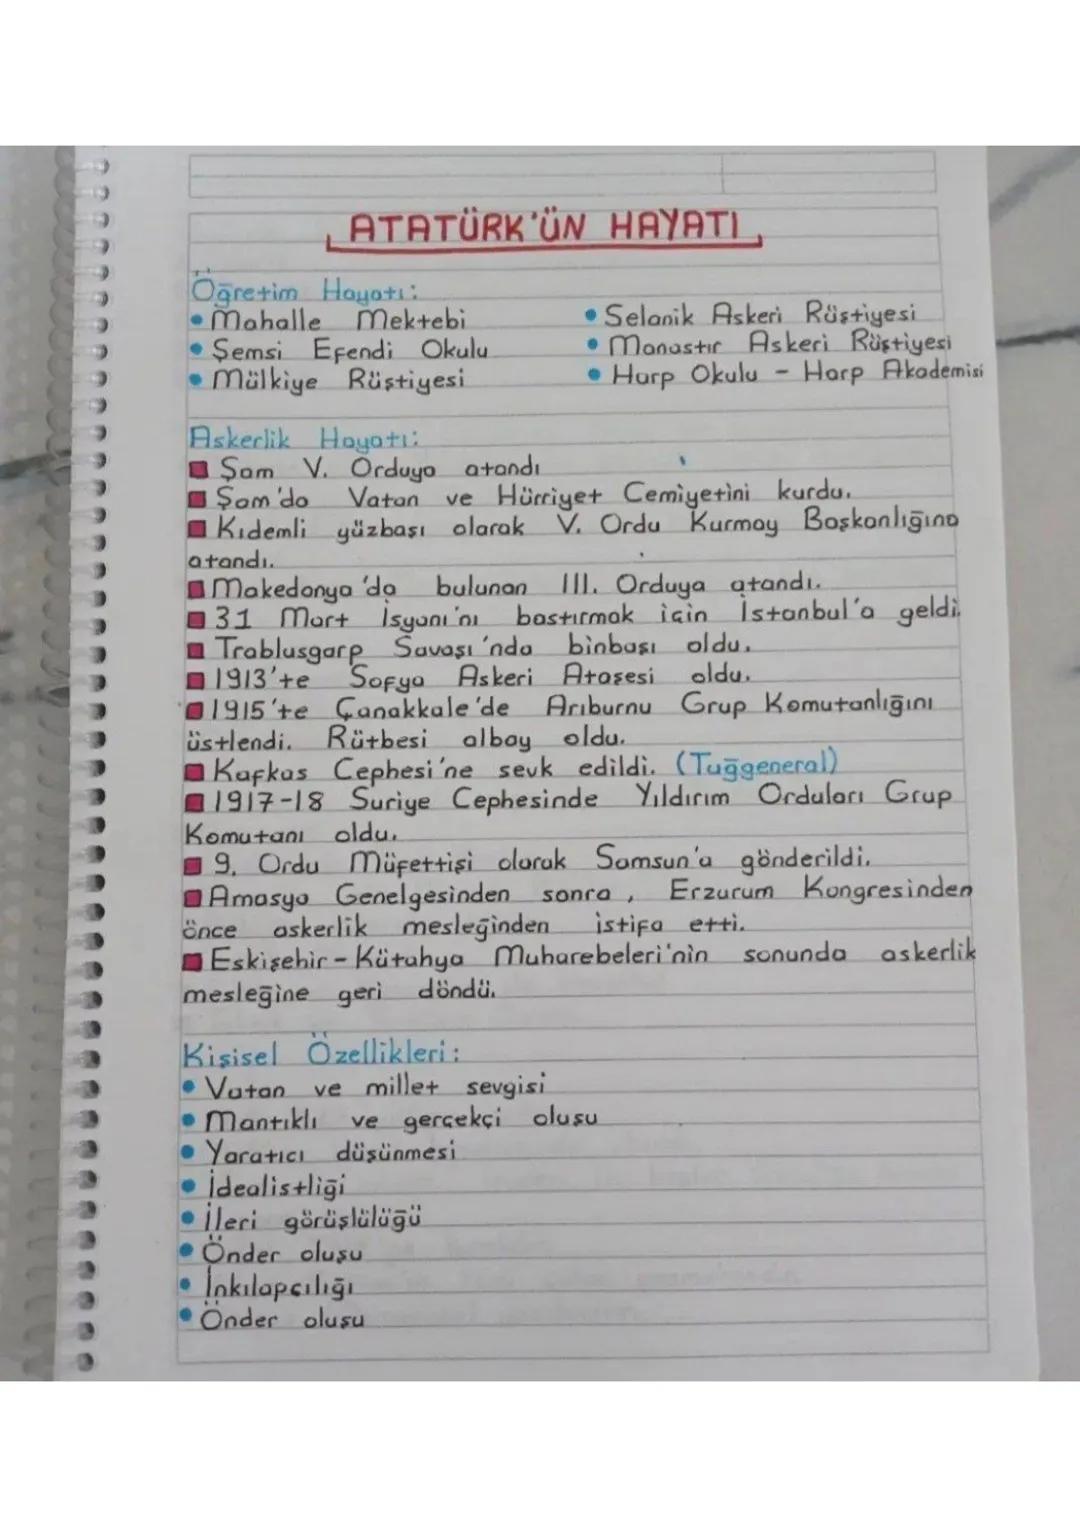 ATATÜRK'ÜN HAYATI
Öğretim Hayatı:
• Mahalle Mektebi
• Şemsi Efendi Okulu
• Mülkiye Rüştiyesi
• Selanik Askeri Rüştiyesi
• Manastır Askeri Rüştiyesi
• Harp Okulu - Harp Akademisi
Askerlik Hayatı:
■ Şam V. Orduya atandı
■ Şam'da Vatan ve Hürriyet Cemiyetini kurdu.
■ Kıdemli yüzbaşı olarak V. Ordu Kurmay Başkanlığına
atandı.
■ Makedonya'da bulunan III. Orduya atandı.
■ 31 Mart İsyanı'nı bastırmak için İstanbul'a geldi.
■ Trablusgarp Savaşı'nda binbaşı oldu.
■ 1913'te Sofya Askeri Ataşesi oldu.
■ 1915'te Çanakkale'de Arıburnu Grup Komutanlığını
üstlendi. Rütbesi albay oldu.
■ Kafkas Cephesi'ne sevk edildi. (Tuğgeneral)
■ 1917-18 Suriye Cephesinde Yıldırım Orduları Grup
Komutanı oldu.
■ 9. Ordu Müfettişi olarak Samsun'a gönderildi.
■ Amasya Genelgesinden sonra, Erzurum Kongresinden
önce askerlik mesleğinden istifa etti.
■ Eskişehir-Kütahya Muharebeleri'nin sonunda askerlik
mesleğine geri döndü.
Kişisel Özellikleri:
• Vatan ve millet sevgisi
• Mantıklı ve gerçekçi oluşu
• Yaratıcı düşünmesi
• İdealistliği
• İleri görüşlülüğü
• Önder oluşu
• İnkılapçılığı
• Önder oluşu